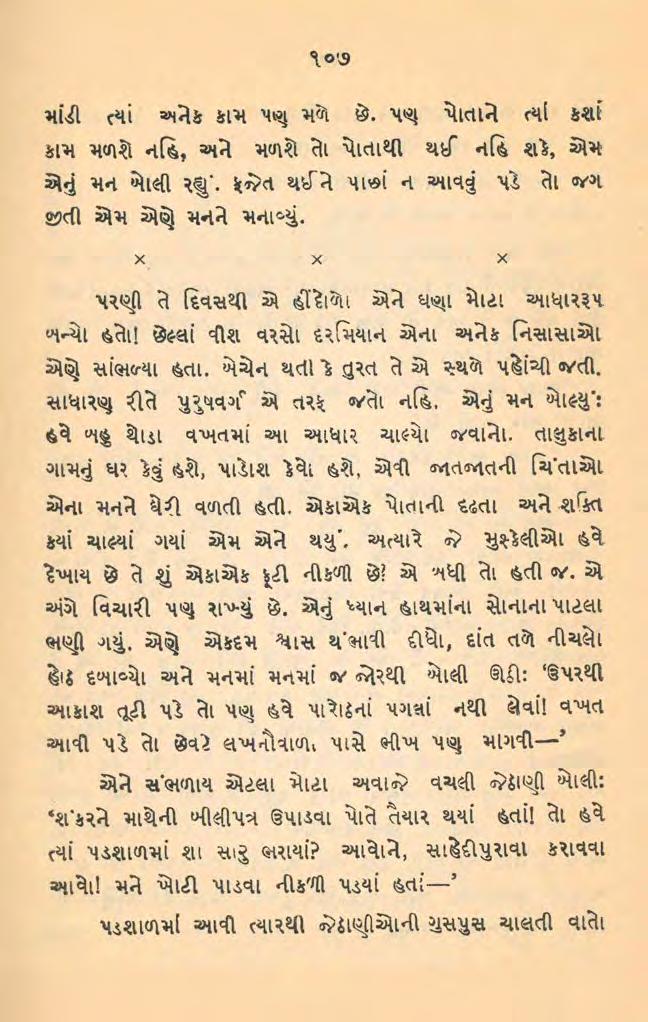 ૧૦૭
માંડી ત્યાં અનેક કામ પણ મળે છે. પણ પોતાને ત્યાં કશાં
કામ મળશે નહિ, અને મળશે તો પોતાથી થઈ નહિ શકે, એમ
એનું મન બોલી રહ્યું. ફજેત થઈને પાછાં ન આવવું પડે તો જગ
જીતી એમ એણે મનને મનાવ્યું.
× × ×
પરણી તે દિવસથી એ હીંદોળો એને ઘણા મોટા આધારરૂપ
બન્યો હતો! છેલ્લાં વીશ વરસો દરમિયાન એના અનેક નિસાસાઓ
એણે સાંભળ્યા હતા. બેચેન થતી કે તુરત તે એ સ્થળે પહોંચી જતી.
સાધારણ રીતે પુરુષવર્ગ એ તરફ જતો નહિ. એનું મન બોલ્યું:
હવે બહુ થોડા વખતમાં આ આધાર ચાલ્યો જવાનો. તાલુકાના
ગામનું ઘર કેવું હશે, પાડોશ કેવો હશે, એવી જાતજાતની ચિંતાઓ
એના મનને ઘેરી વળતી હતી. એકાએક પોતાની દઢતા અને શક્તિ
ક્યાં ચાલ્યાં ગયાં એમ એને થયું. અત્યારે જે મુશ્કેલીઓ હવે
દેખાય છે તે શું એકાએક ફૂટી નીકળી છે? એ બધી તો હતી જ. એ
અંગે વિચારી પણ રાખ્યું છે. એનું ધ્યાન હાથમાંના સોનાના પાટલા
ભણી ગયું. એણે એકદમ શ્વાસ થંભાવી દીધો, દાંત તળે નીચલો
હોઠ દબાવ્યો અને મનમાં મનમાં જ જોરથી બોલી ઊઠી: ‘ઉપરથી
આકાશ તૂટી પડે તો પણ હવે પારોઠનાં પગલાં નથી લેવાં! વખત
આવી પડે તો છેવટે લખનૌવાળા પાસે ભીખ પણ માગવી—’
એને સંભળાય એટલા મોટા અવાજે વચલી જેઠાણી બોલી:
‘શંકરને માથેની બીલીપત્ર ઉપાડવા પોતે તૈયાર થયાં હતાં! તો હવે
ત્યાં પડશાળમાં શા સારુ ભરાયાં? આવોને, સાહેદીપુરાવા કરાવવા
આવો! મને ખોટી પાડવા નીકળી પડયાં હતાં—’
પડશાળમાં આવી ત્યારથી જેઠાણીઓની ગુસપુસ ચાલતી વાતો